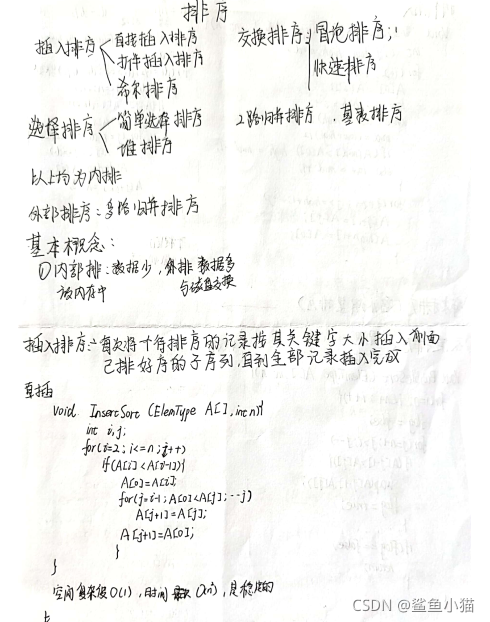 排序
插入排序 直接插入排序 交换排序: 冒泡排序;
折半插入排序 快速排序
希尔排序
选择排序 简单选择排序 2路归并排序 . 基数排序
堆排序
以上均为内排
外部排序:多路归并排序
基本概念:
①内部排:数据少, 外排 数据多
放内存中 与磁盘交换
插入排序:每次将一个待排序的记录按其关键字大小插入前面
已排好序的子序列,直到全部记录插入完成
直插
void InsertSort (ElemType A[],int n){
int i,j;
for(i=2; i<=n; i++)
if(A[i]<A[i-1]){
A[0]=A[i];
for(j=i-1; A[0]<A[j]; --j)
A[j+1]=A[j];
A[j+1]=A[0];
}
}
空间复杂度O(1),时间 O(n²),是稳定的
CSDN @鲨鱼小猫